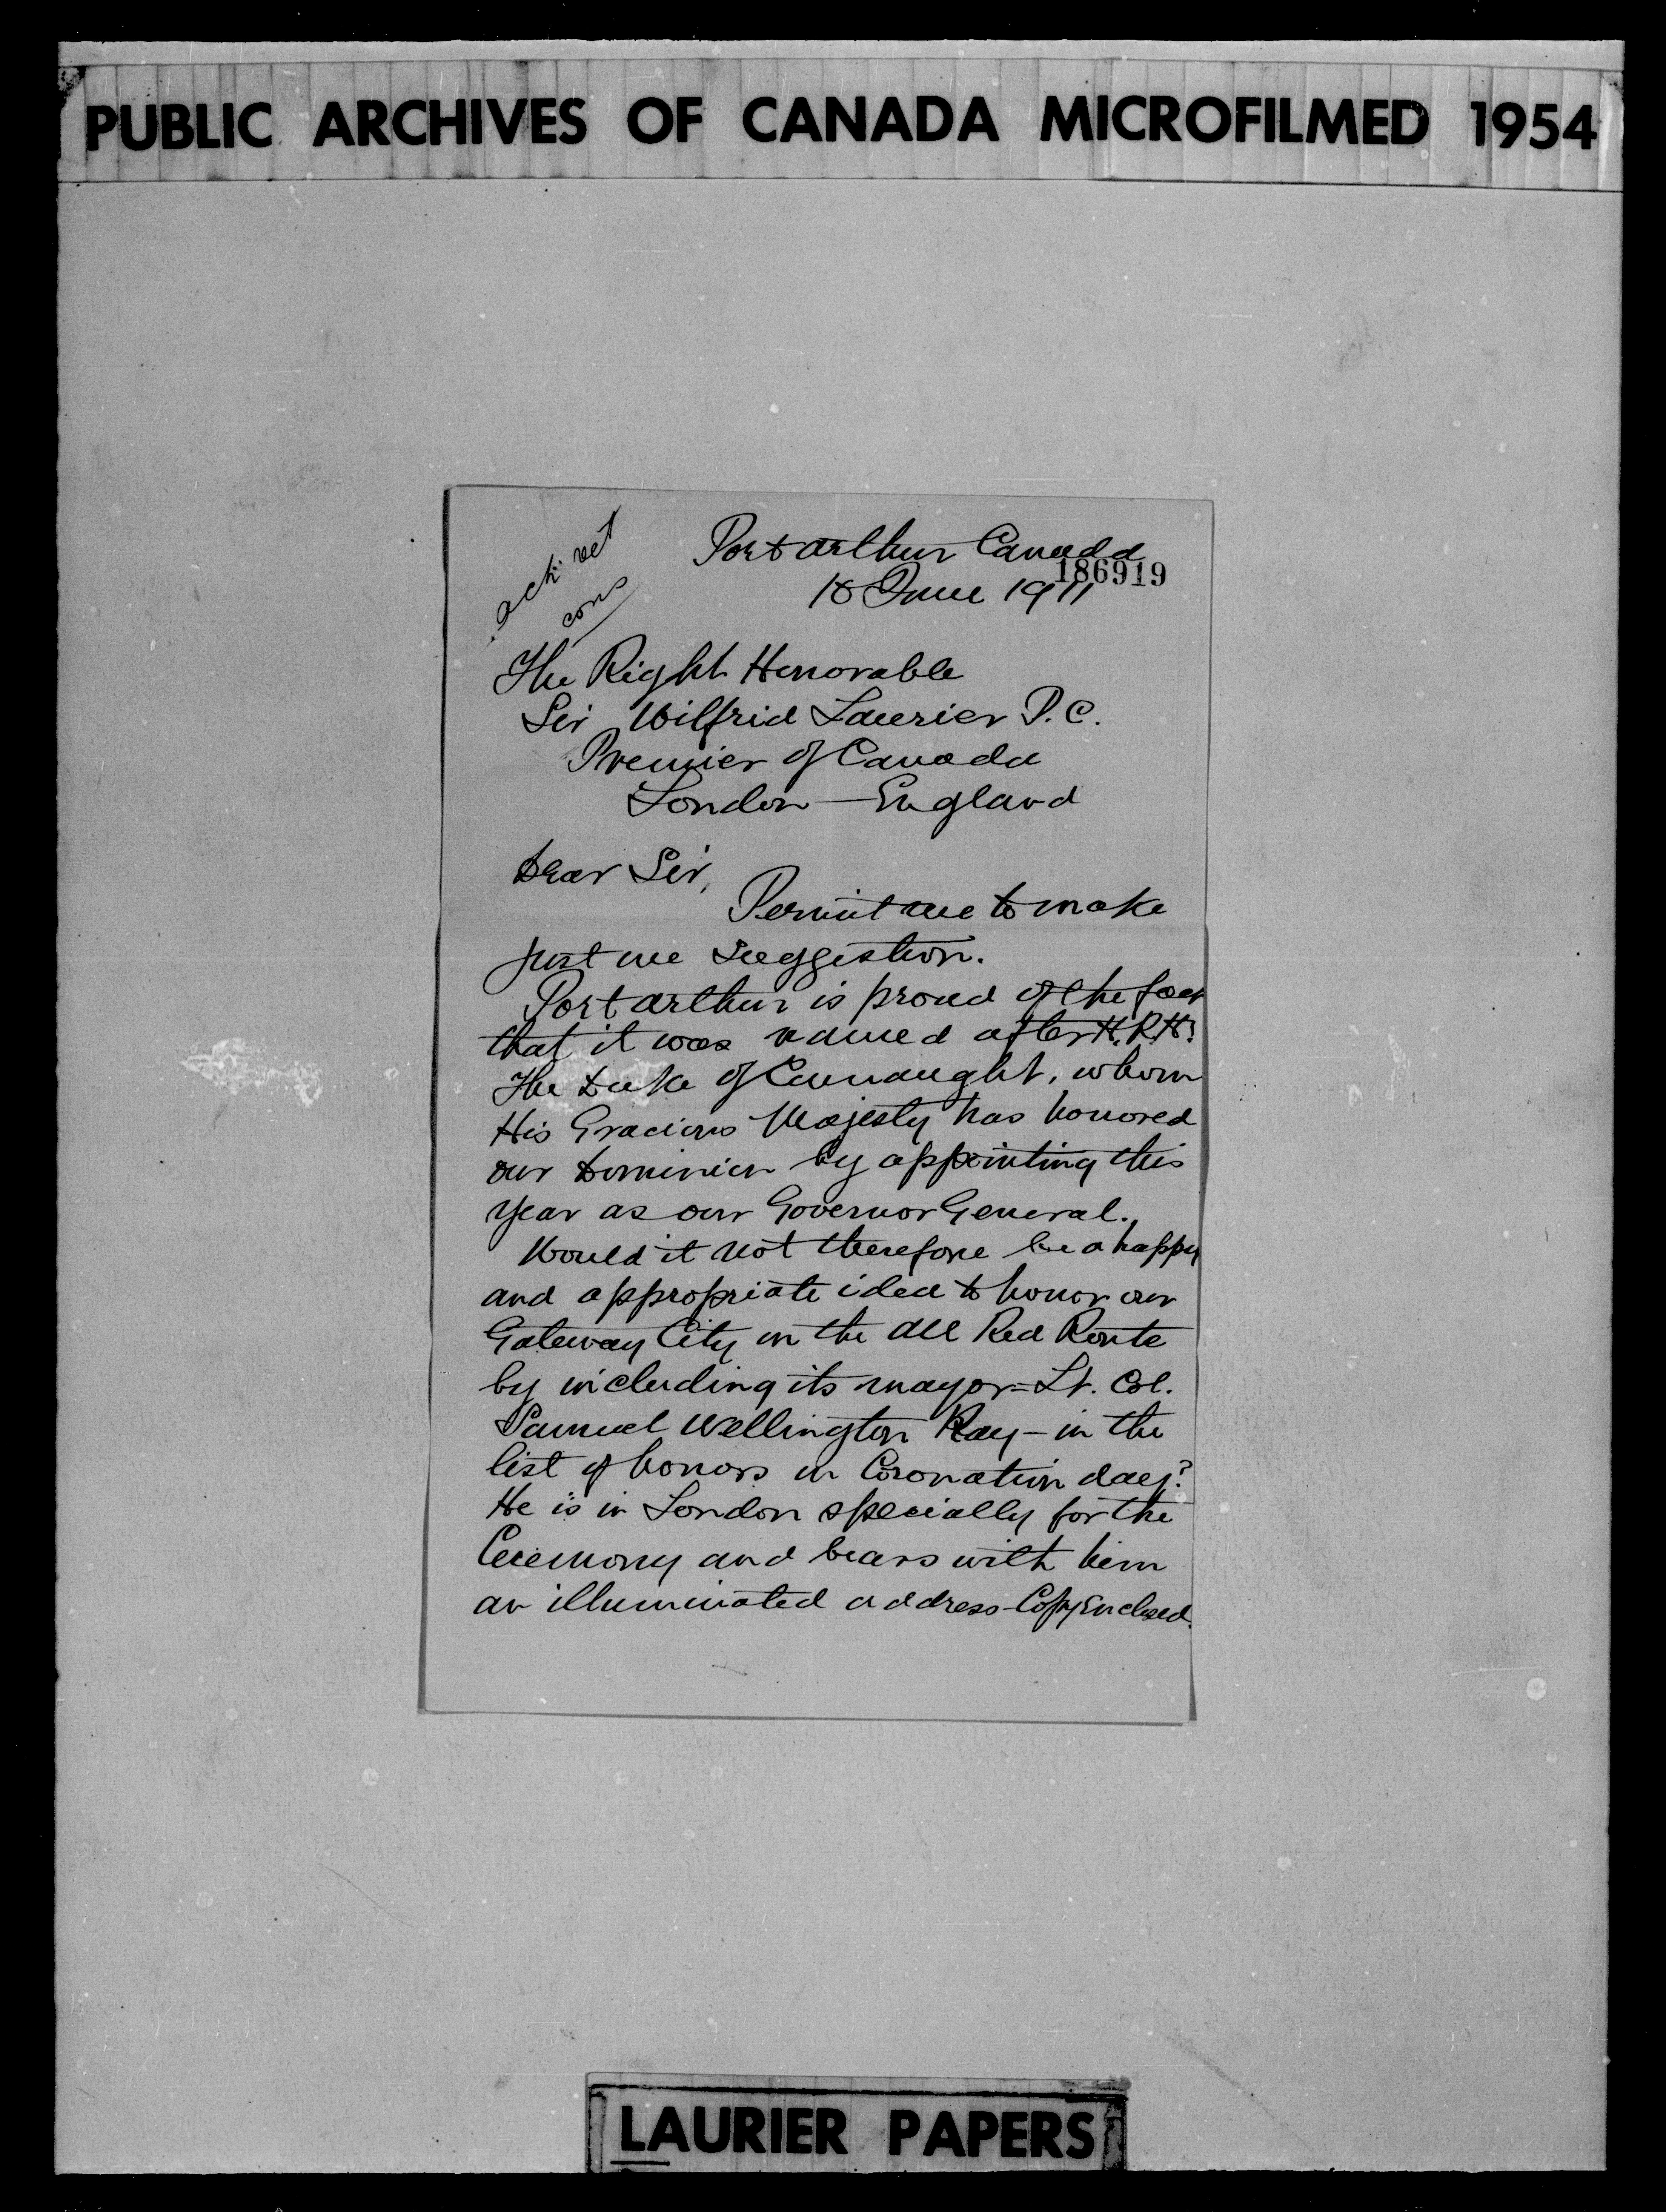 PUBLIC ARCHIVES OF CANADA MICROFILMED 1954
ack. ret
cons
Port Arthur Canada
186919
18 June 1911
The Right Honorable
Sir Wilfrid Laurier P.C.
Premier of Canada
London — England
Dear Sir,
Permit me to make
just one suggestion.
Port Arthur is proud of the fact
that it was named after H.R.H.
The Duke of Connaught, whom
His Gracious Majesty has honored
our Dominion by appointing this
year as our Governor General.
Would it not therefore be a happy
and appropriate idea to honor our
Gateway City on the All Red Route
by including its mayor - Lt. Col.
Samuel Wellington Ray - in the
list of honors on Coronation day?
He is in London specially for the
Ceremony and bears with him
an illuminated address - Copy Enclosed.
LAURIER PAPERS